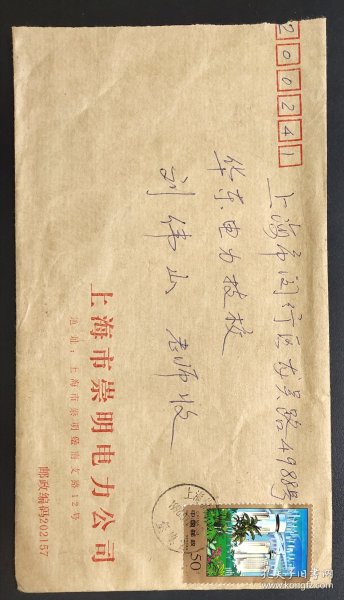 200241
上海市闵行区龙吴路4988号
华东电力技校
刘伟山 老师收
上海市崇明电力公司
地址:上海市崇明
支路12号
邮政编码202157
上海
中国邮政
50
孔夫子旧书网